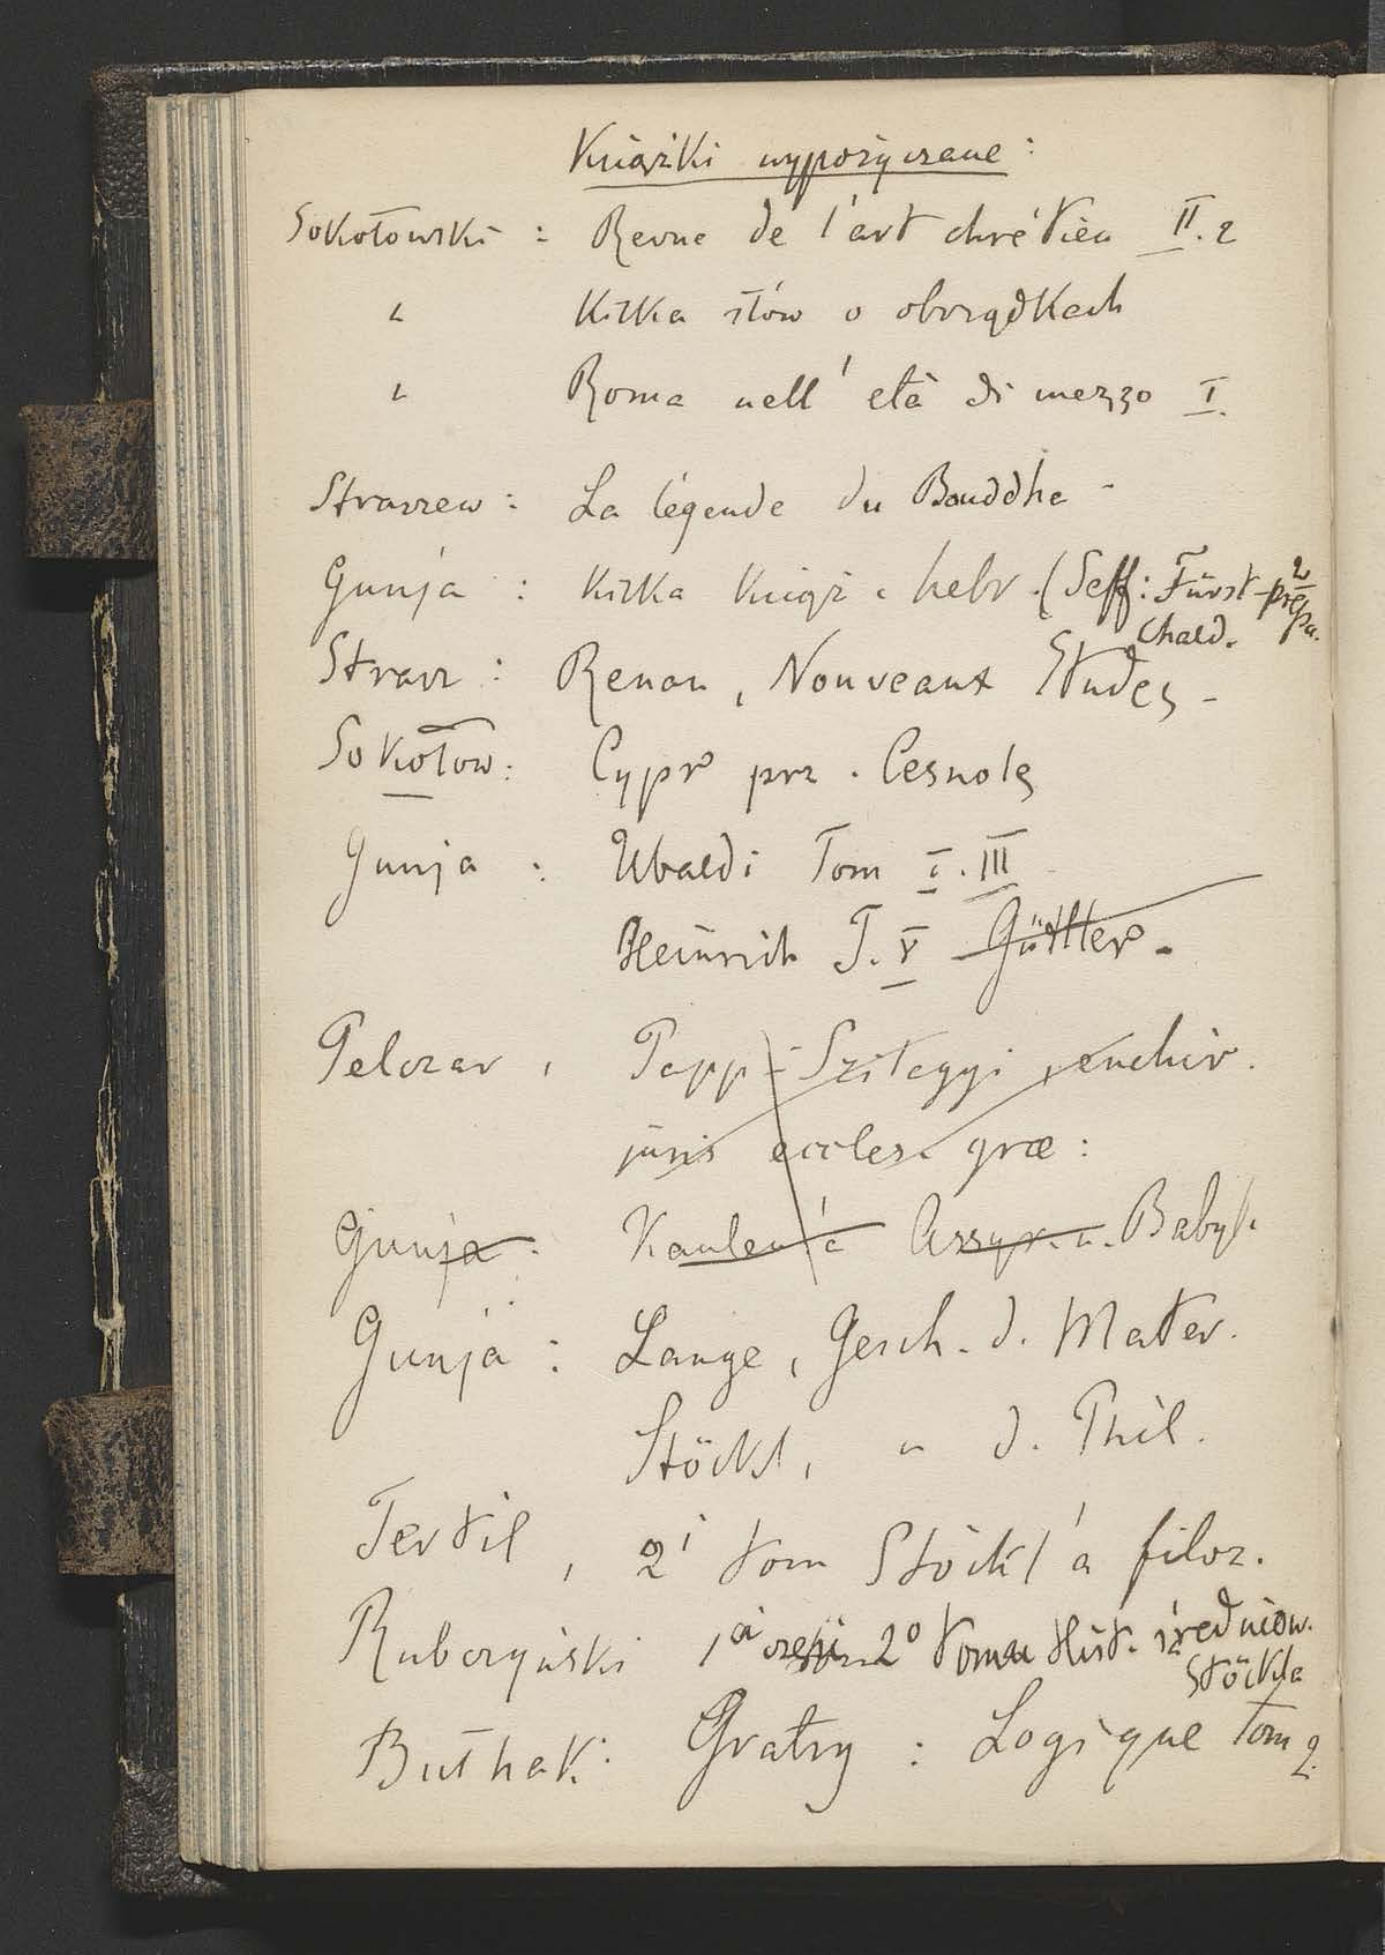 Książki wypożyczane:
Sokołowski : Revue de l'art chrétien II. 2
" Kilka słów o obrządkach
" Roma nell' età di mezzo I.
Straszew : La légende du Bouddha -
Gunja : Kilka książ. hebr. (Seff: Fürst
chald.
Strasz : Renan, Nouveaux Études -
Sokołow: Cypr prz. Cesnolę
Gunja : Ubaldi Tom I. III
Heinrich T. V Güttler -
Pelczar, Papp-Szilagyi, enchir.
juris eccles. græ:
Gunja : Kaulen'a Assyr. u. Babyl.
Gunja : Lange, Gesch. d. Mater.
Stöckl, " d. Phil.
Tertil, 2i tom Stöckl'a filoz.
Rubczyński 1a 2o toma Hist. średniow.
Stöckla
Buthak: Gratry : Logique Tom 2.